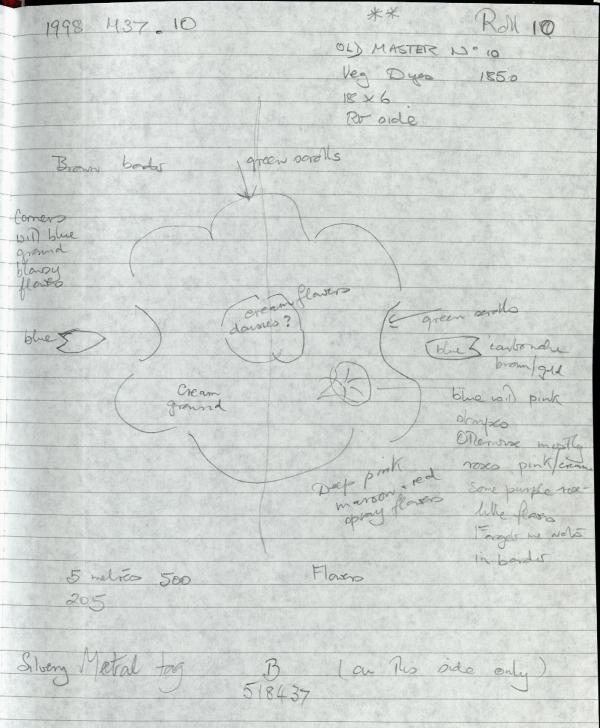 1998 437.10
** Roll 10
OLD MASTER No 10
Veg Dyes 1850
18 x 6
Rt side
Brown border
green scrolls
Corners
with blue
ground
blowsy
flowers
cream flowers
daisies?
green scrolls
blue
blue cartouche
brown/gold
Cream
ground
blue with pink
stripes
Otherwise mostly
roses pink/cream
Some purple rose-
like flowers
Forget me nots
in border
Deep pink
maroon + red
spray flowers
5 metres 500
205
Flowers
Silvery Metal tag B (on this side only)
518437